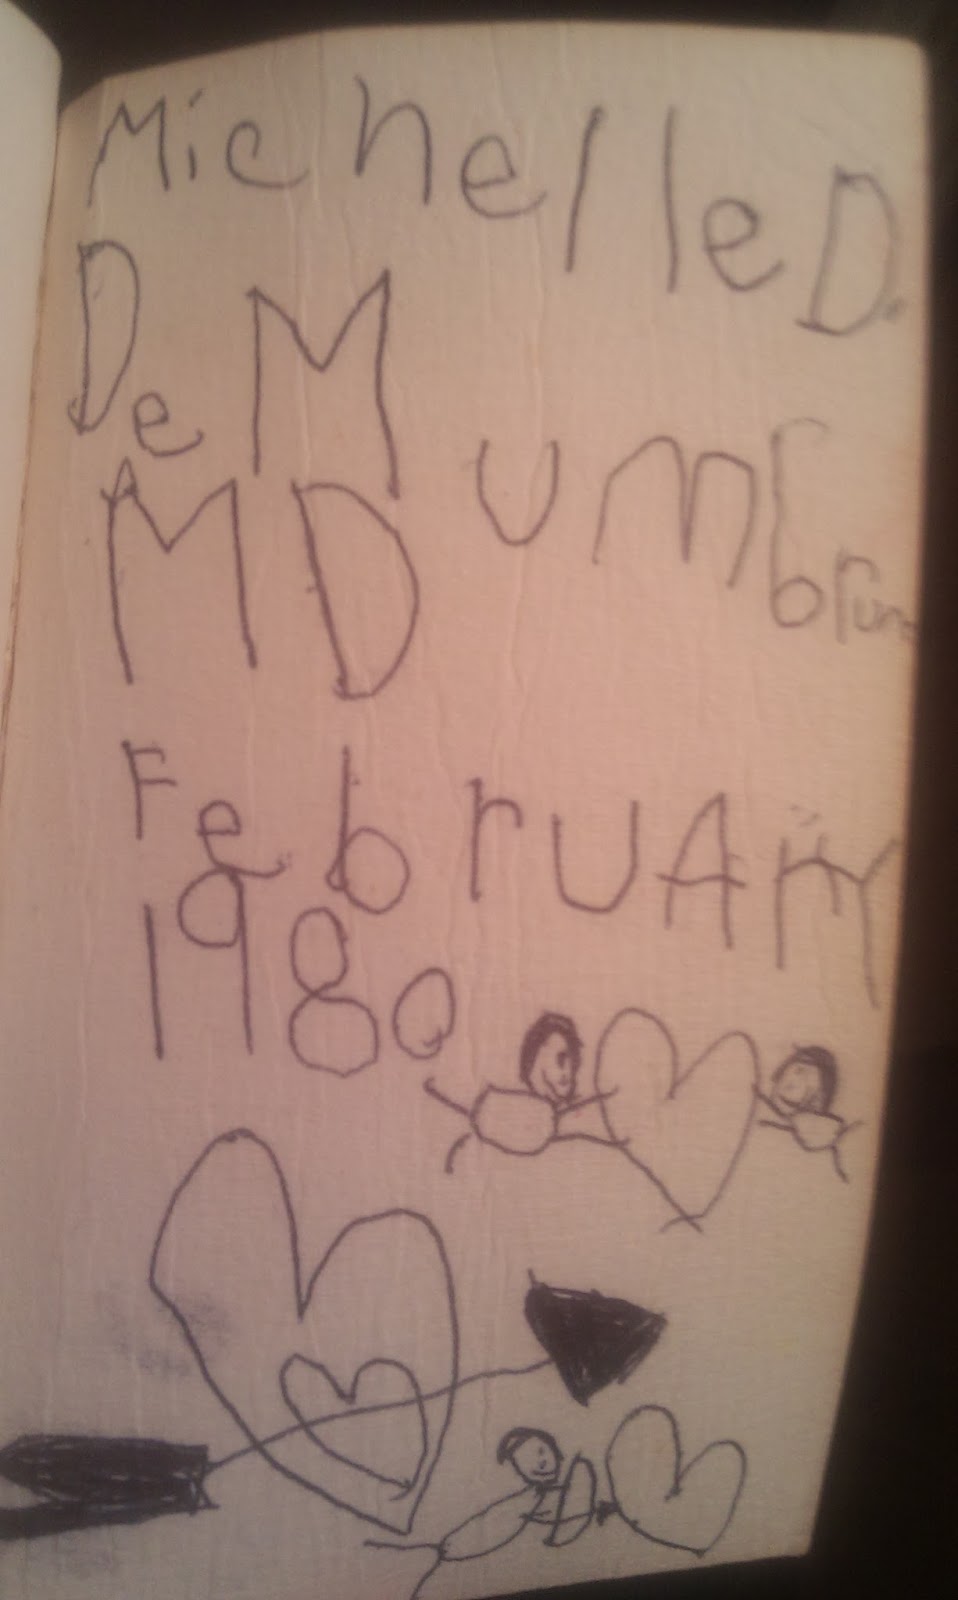 Michelle D.
DeMumbrun
MD
February
1980